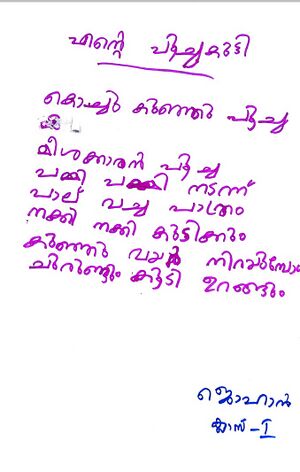 എന്റെ പൂച്ചകുട്ടി
കൊച്ചു കുഞ്ഞു പൂച്ച
മീശക്കാരൻ പൂച്ച
പമ്മി പമ്മി നടന്ന്
പാല് വച്ച പാത്രം
നക്കി നക്കി കുടിക്കും
കുഞ്ഞു വയർ നിറയുമ്പോ
ചുരുണ്ടും കൂടി ഉറങ്ങും
ജൊഹാൻ
ക്ലാസ് - I